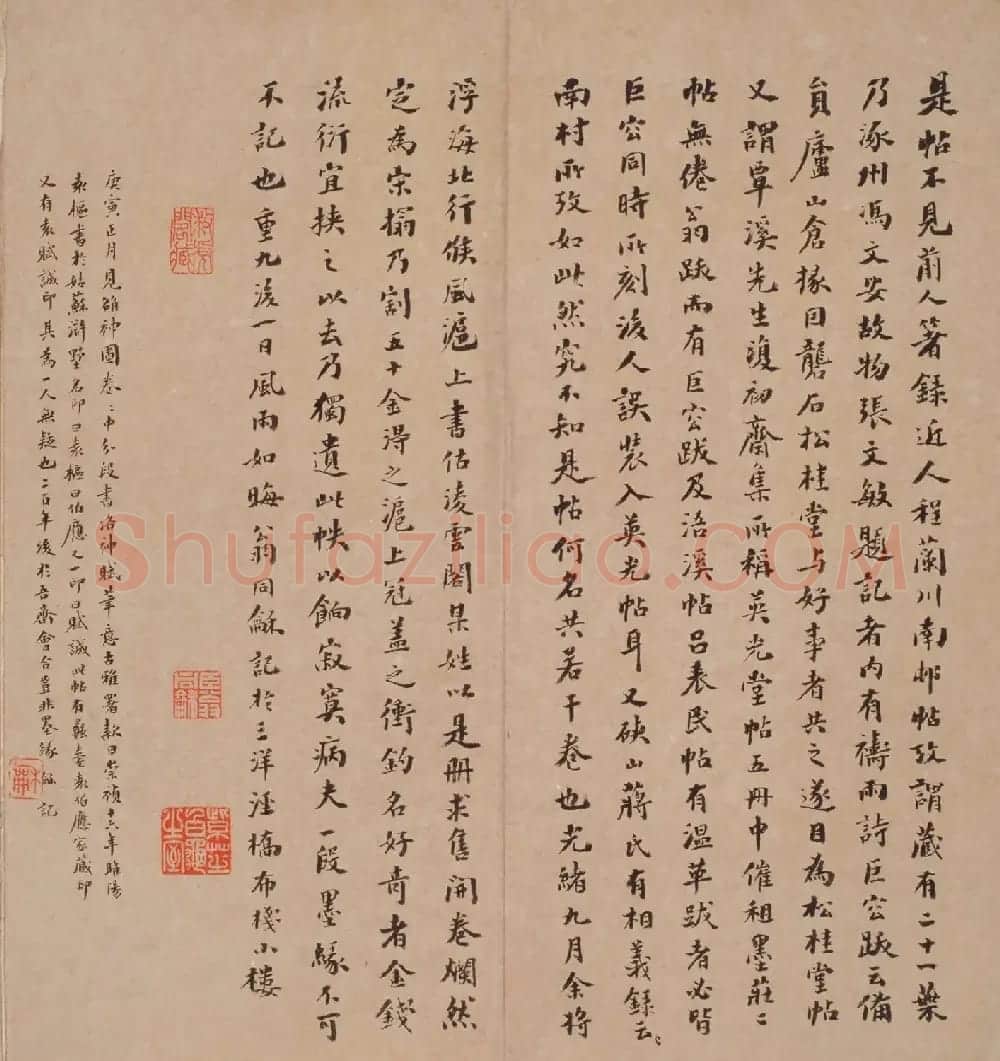 是帖不見前人著錄近人程蘭川南邨帖攷謂藏有二十一葉
乃涿州馮文安故物張文敏題記者內有禱雨詩巨容跋云備
員廬山倉掾因礱石松桂堂与好事者共之遂目為松桂堂帖
又謂覃溪先生復初齋集所稱英光堂帖五冊中催租墨莊二
帖無倦翁跋而有巨容跋及浯溪帖呂表民帖有溫革跋者必皆
巨容同時所刻後人誤裝入英光帖耳又硤山蔣氏有相義錄云
南村所攷如此然究不知是帖何名共若干卷也光緒九月余將
浮海北行候風滬上書估淩雲閣某姓以是冊求售開卷爛然
定為宋搨乃割五十金得之滬上冠蓋之衝鈞名好奇者金錢
流衍宜挾之以去乃獨遺此帙以餉寂寞病夫一段墨緣不可
不記也重九後一日風雨如晦翁同龢記於三洋涇橋布棧小樓
庚寅正月見雒神圖卷二中分段書洛神賦筆意古雅署款曰崇禎十六年睢陽
袁樞書於姑蘇滸墅名印曰袁樞曰伯應又一印曰賦諴此帖有袁伯應家藏印
又有袁賦諴印其為一人無疑也二百年後於吾齋會合豈非墨緣 記
Shufaziliao.COM